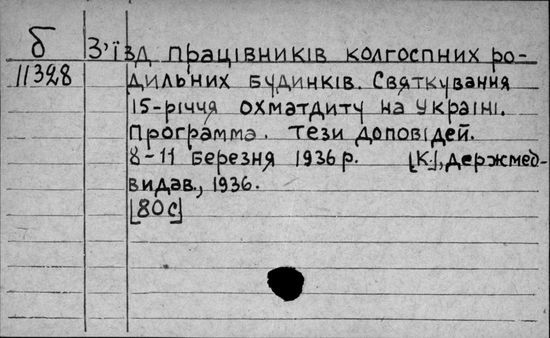 б
11328
З'їзд працівників колгоспних ро-
дильних будинків. Святкування
15-річчя охматдиту на Україні.
Программа. Тези доповідей.
8-11 березня 1936 р. [К.], Держмед-
видав., 1936.
[80 с]